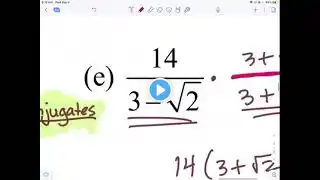 (e) 14 / 3 − √2 · 3 + / 3 +
jugates
14 (3 + √2